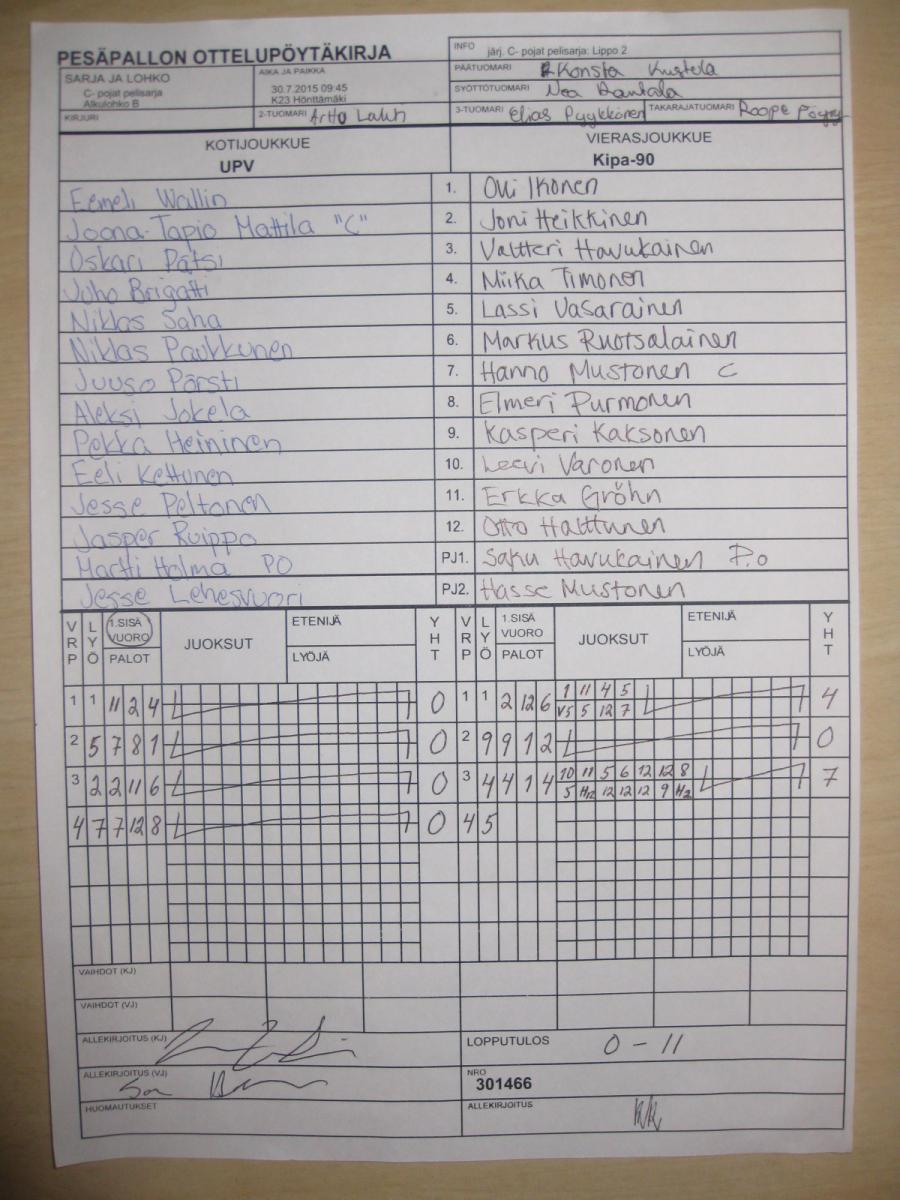 PESÄPALLON OTTELUPÖYTÄKIRJA
INFO järj. C- pojat pelisarja: Lippo 2
SARJA JA LOHKO
C- pojat pelisarja
Alkulohko B
AIKA JA PAIKKA
30.7.2015 09:45
K23 Hönttämäki
PÄÄTUOMARI Konsta Kustela
SYÖTTÖTUOMARI Noa Rantala
KIRJURI
2-TUOMARI Arttu Lahti
3-TUOMARI Elias Pyykkönen
TAKARAJATUOMARI Roope Pöyry
KOTIJOUKKUE
UPV
VIERASJOUKKUE
Kipa-90
Eemeli Wallin 1. Olli Ikonen
Joona-Tapio Mattila "C" 2. Joni Heikkinen
Oskari Pätsi 3. Valtteri Havukainen
Juho Brigatti 4. Miika Timonen
Niklas Saha 5. Lassi Vasarainen
Niklas Paukkunen 6. Markus Ruotsalainen
Juuso Pörsti 7. Hanno Mustonen C
Aleksi Jokela 8. Elmeri Purmonen
Pekka Heininen 9. Kasperi Kaksonen
Eeli Kettunen 10. Leevi Varonen
Jesse Peltonen 11. Erkka Gröhn
Jasper Ruippo 12. Otto Halttunen
Martti Holma PO PJ1. Saku Havukainen P.o
Jesse Lehesvuori PJ2. Hasse Mustonen
VRP LYÖ 1.SISÄ VUORO PALOT JUOKSUT ETENIJÄ LYÖJÄ YHT VRP LYÖ 1.SISÄ VUORO PALOT JUOKSUT ETENIJÄ LYÖJÄ YHT
1 1 11 2 4 0 1 1 2 12 6 1 11 4 5 4
V5 5 12 7
2 5 7 8 1 0 2 9 9 1 2 0
3 2 2 11 6 0 3 4 4 1 4 10 11 5 6 12 12 8 7
5 H12 12 12 12 9 H2
4 7 7 12 8 0 4 5
VAIHDOT (KJ)
VAIHDOT (VJ)
ALLEKIRJOITUS (KJ)
LOPPUTULOS 0 - 11
ALLEKIRJOITUS (VJ)
NRO
301466
HUOMAUTUKSET
ALLEKIRJOITUS